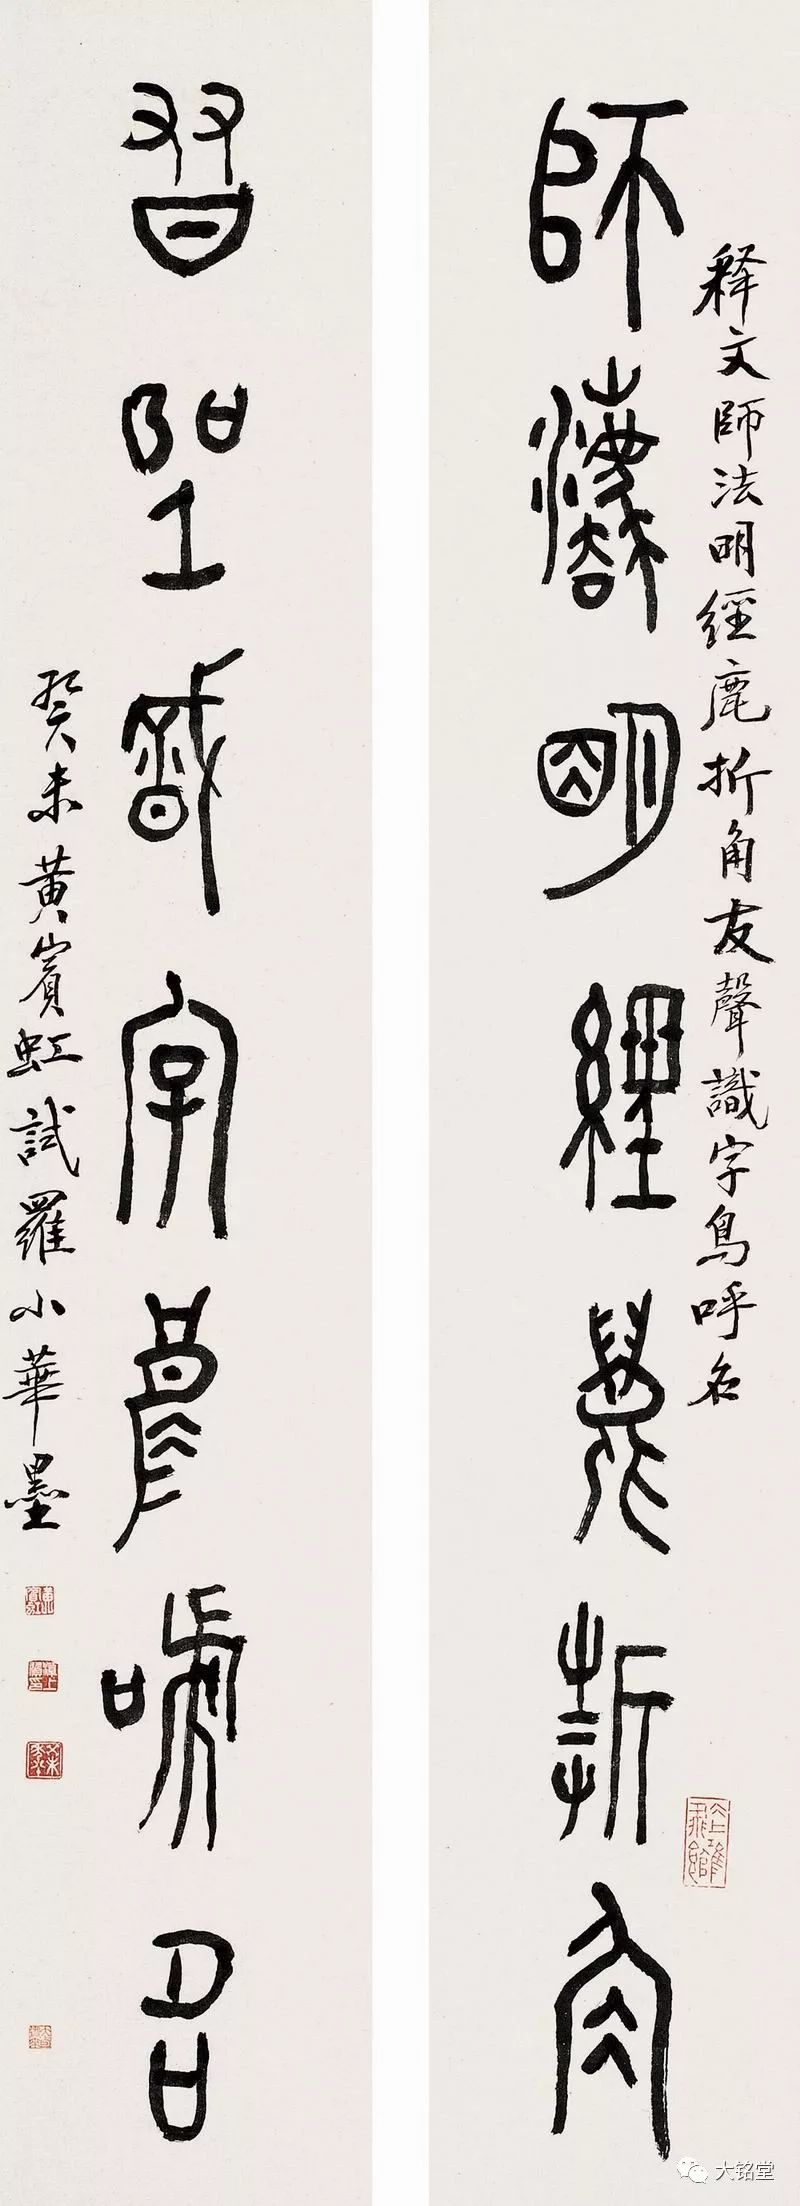 師灋明經鹿折角
释文師法明經鹿折角友聲識字鳥呼名
習聖識字鳥嘑名
癸未黄賓虹試羅小華墨
大铭堂